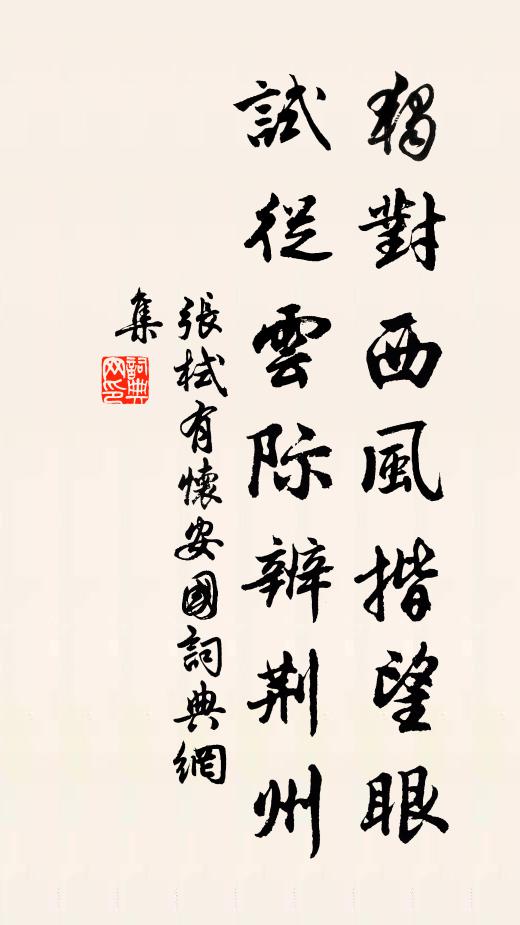 獨對西風揩望眼
試從雲际辨荆州
張栻有懷安國詞典網
集
詞典网印